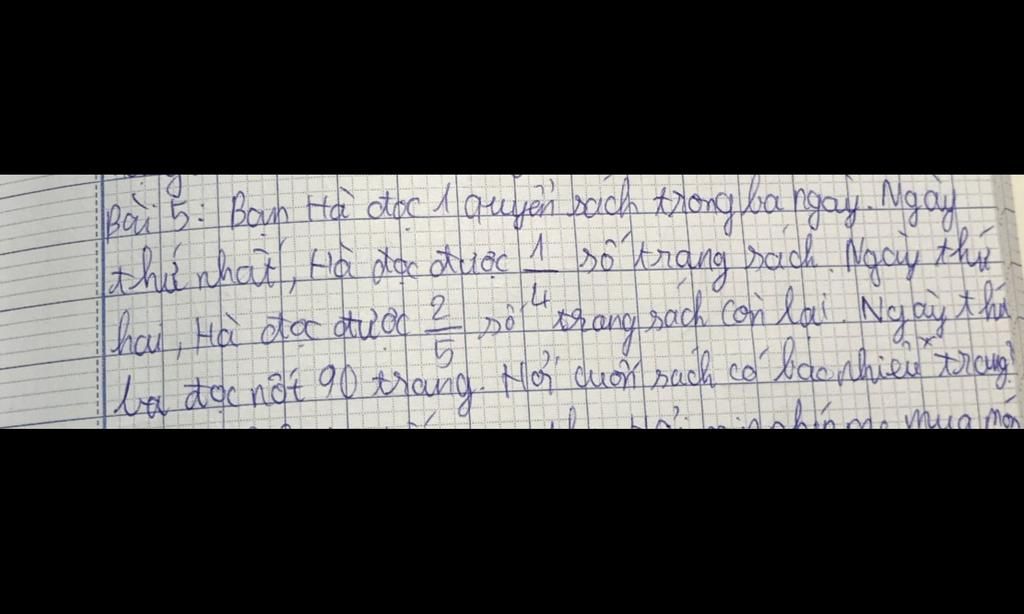 Bài 5: Bạn Hà đọc 1 quyển sách trong ba ngày. Ngày
thứ nhất, Hà đọc được 1/4 số trang sách. Ngày thứ
hai, Hà đọc được 2/5 số trang sách còn lại. Ngày thứ
ba đọc nốt 90 trang. Hỏi cuốn sách có bao nhiêu trang?
mua món